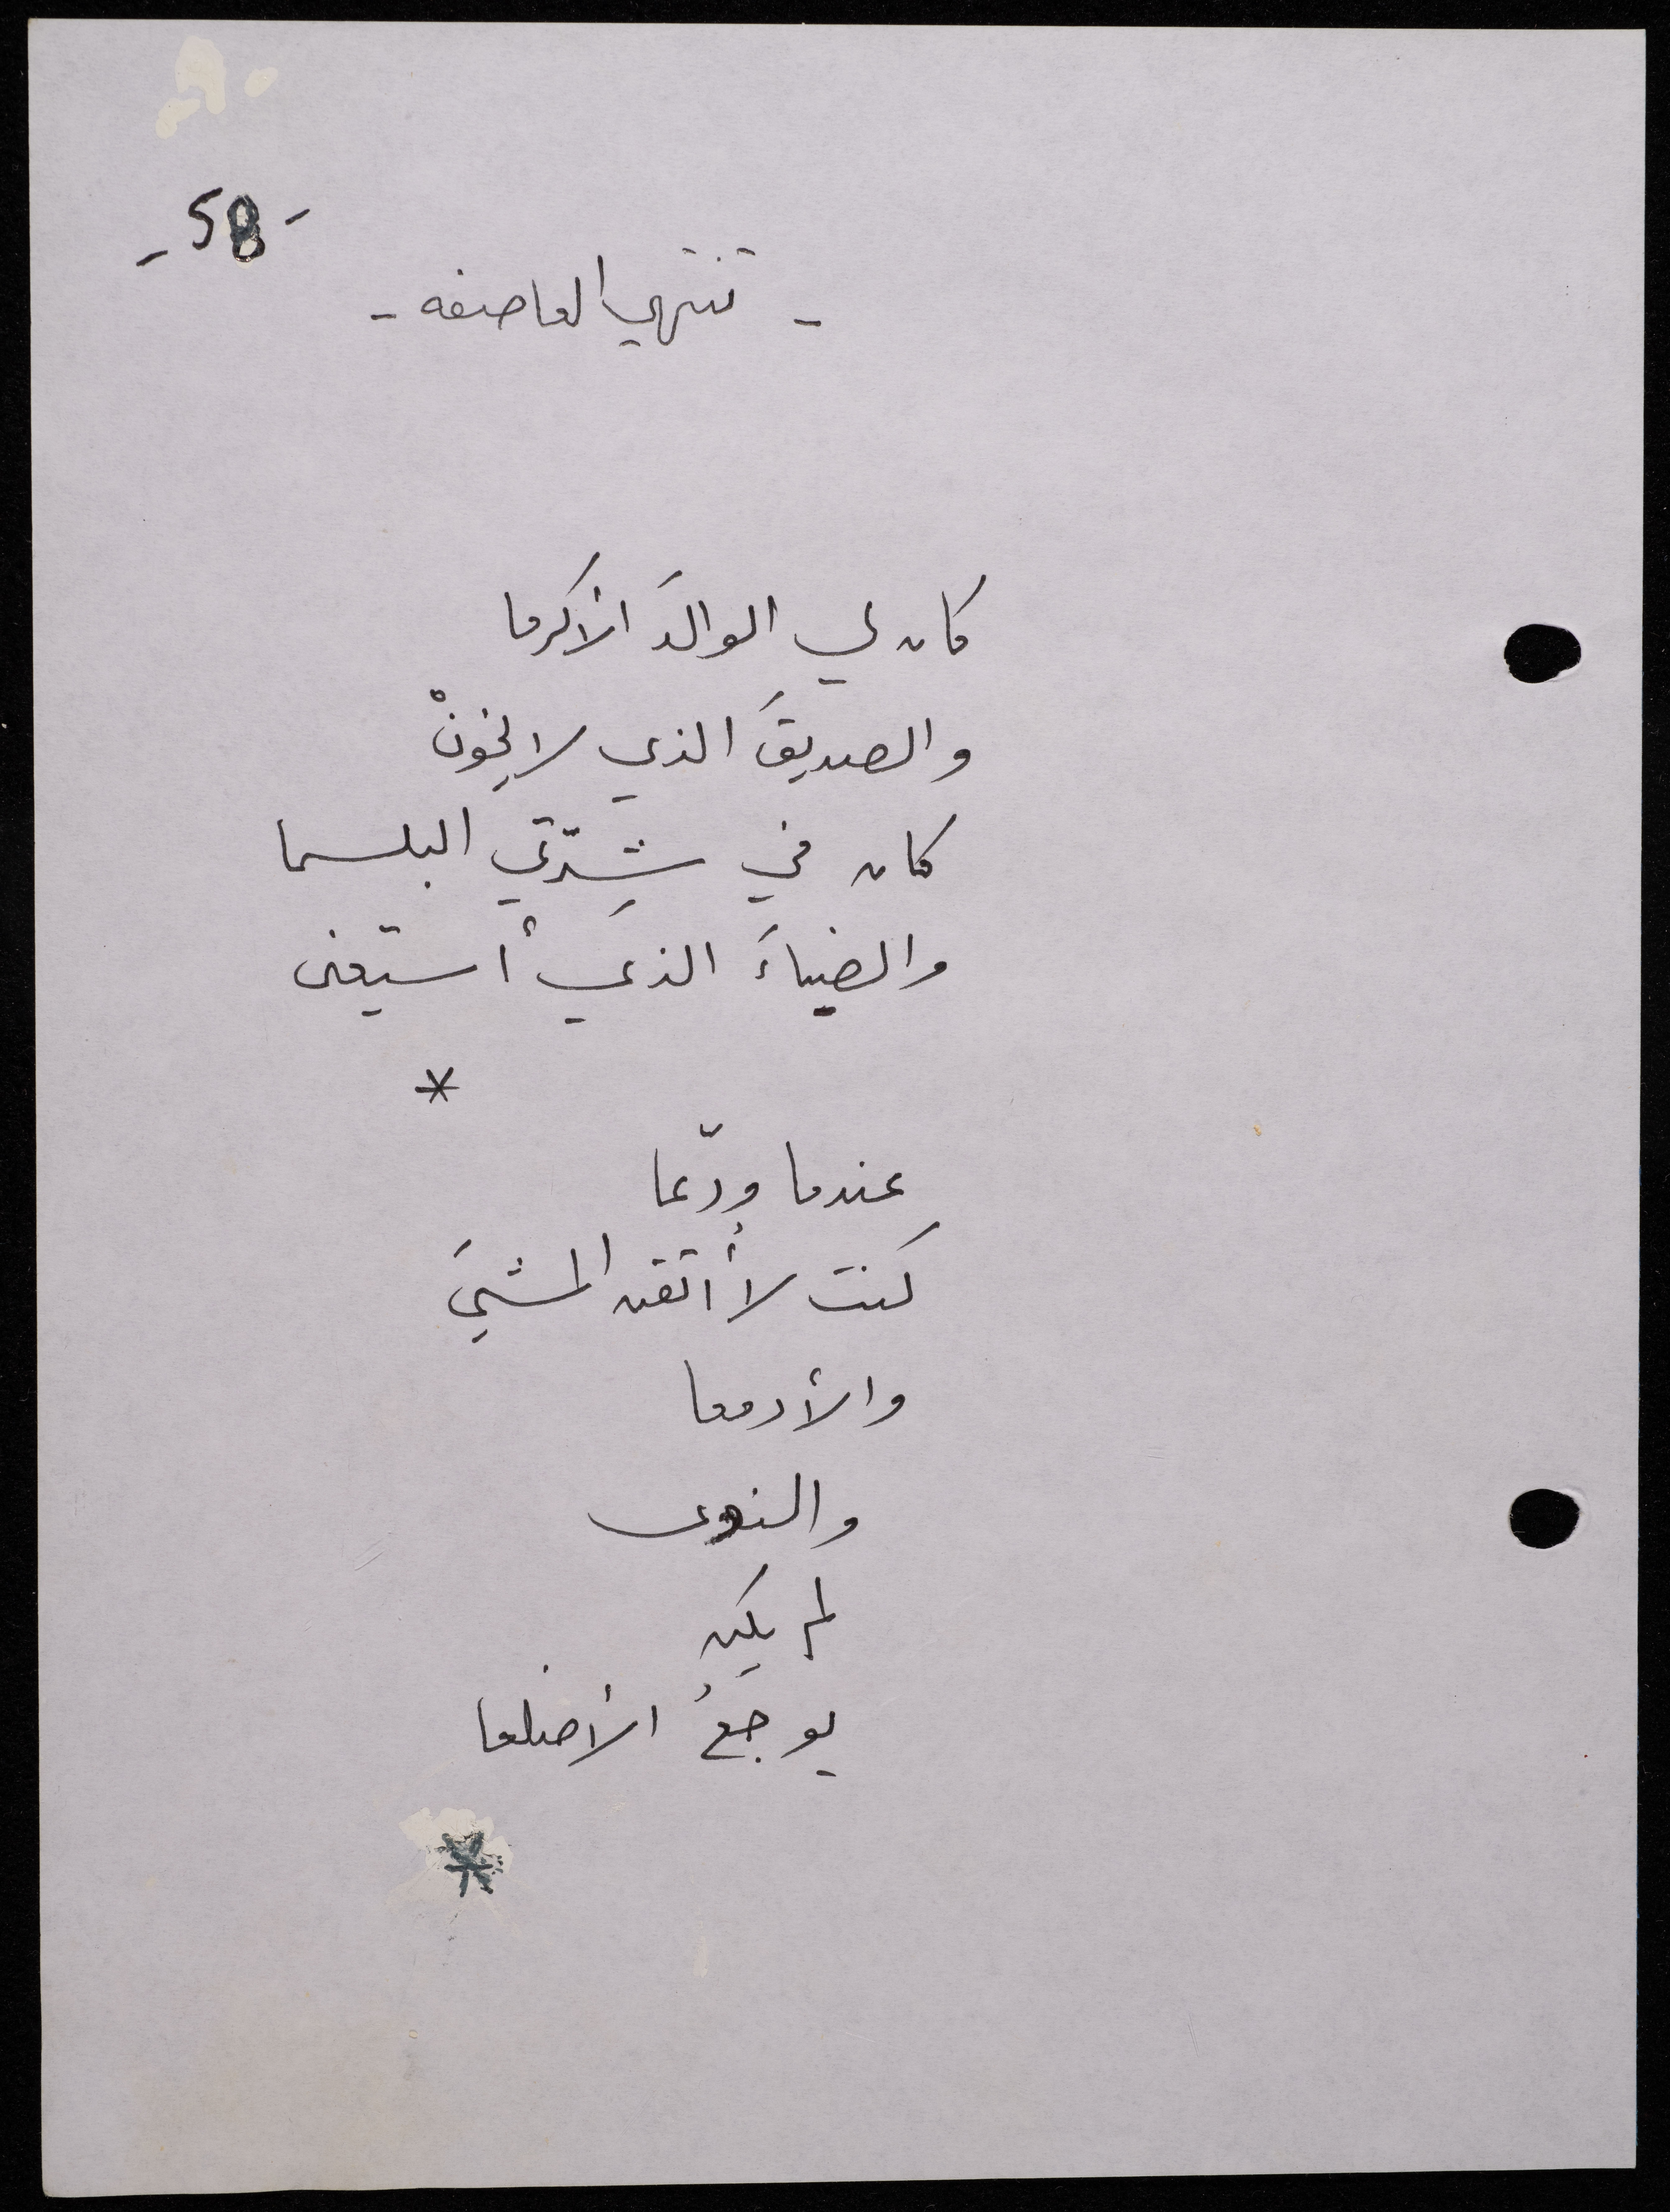 - 58 -
- تنتهي العاصفه -
كان لي الوالدَ الأكرما
والصديقَ الذي لا يخونْ
كان في شِدّتي البلسما
والضياءَ الذي أستعين
*
عندما ودّعا
كنت لا أتقن المشيَ
والأدمعا
والنوى
لم يكن
يوجعُ الأضلعا
*